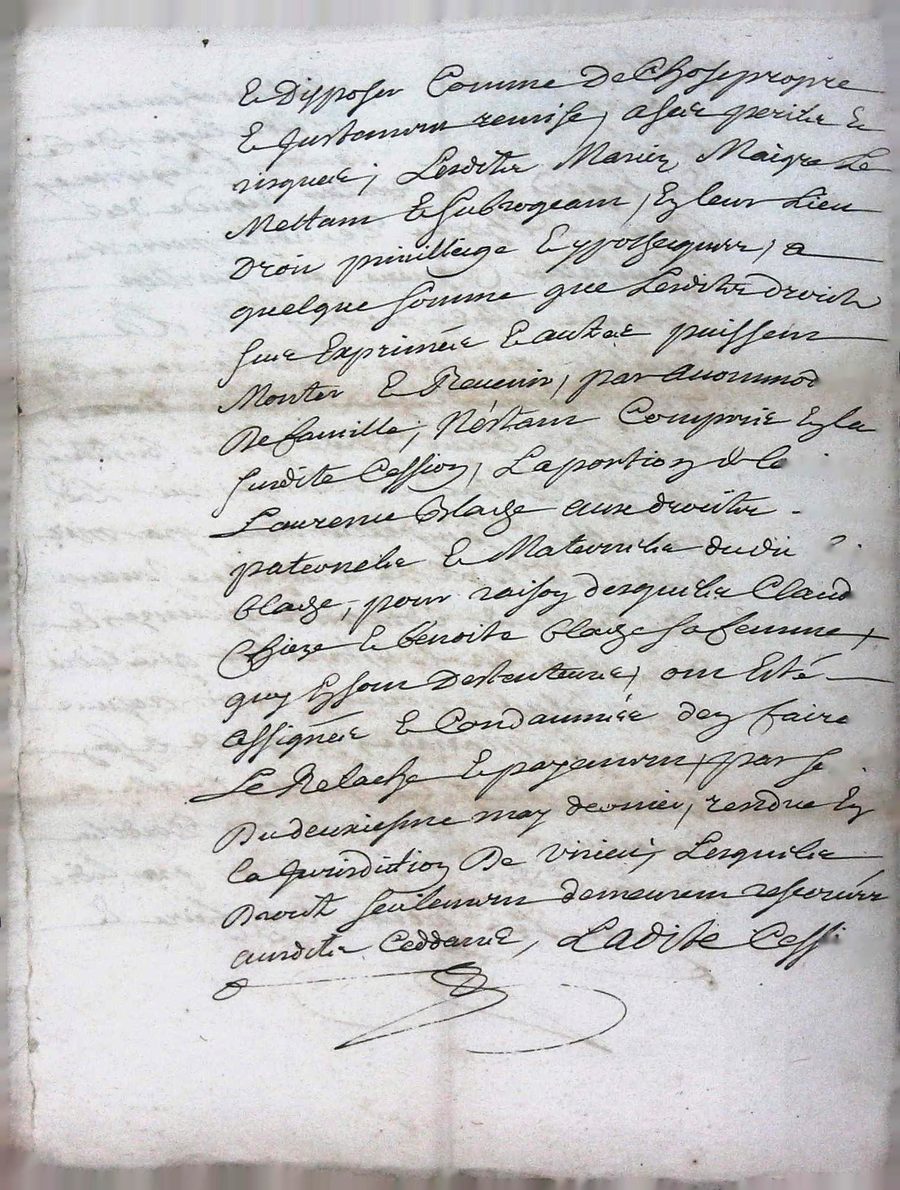 Et disposer Comme De Chose propre
Et Justement remise, a ses perils Et
risques; Lesdits Mariez Maigre Le
Mettant Et Subrogeant, En leur Lieu
Droit privillege Et ypothecques, a
quelque somme que Lesdits droits
sus Exprimés Et autres puissent
Monter Et Revenir, par
De famille, N'estant Compris En la
susdite Cession, La portion de la
Laurence Blaze aux droits
paternels Et Maternels dudit
blaze, pour raison desquels Claud
Chieze Et benoite blaze sa femme
quy En sont Destenteurs, ont Esté
assignés Et Condamnés d'en faire
Le Relache Et payement, par se
Du deuxiesme may dernier, rendue En
la Jurisdition De virieu, Lesquels
Droits seulement demeurent reservés
ausdits Ceddants, Ladite Cessi